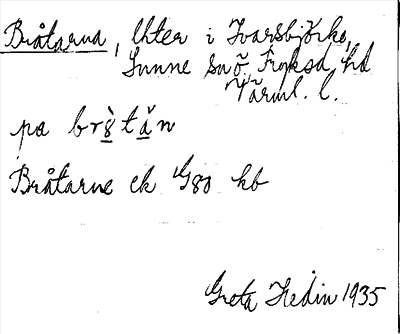 Bråtarna, lhter i Ivarsbjörke,
Sunne sn Fryksd. hd
Värml. l.
pa
Bråtarne ek G80 kb
Greta Hedin 1935